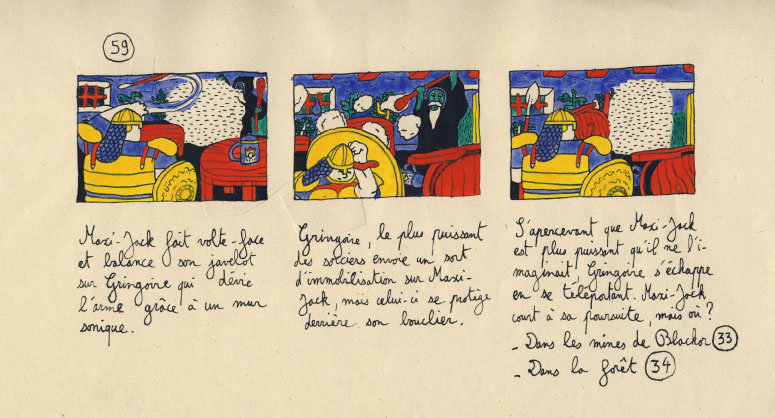 59
Maxi-Jack fait volte-face
et balance son javelot
sur Gringoire qui dévie
l'arme grâce à un mur
sonique.
Gringoire, le plus puissant
des sorciers envoie un sort
d'immobilisation sur Maxi-
Jack, mais celui-ci se protège
derrière son bouclier.
S'apercevant que Maxi-Jack
est plus puissant qu'il ne l'i-
maginait, Gringoire s'échappe
en se télépotant. Maxi-Jack
court à sa poursuite, mais où ?
- Dans les mines de Blackor 33
- Dans la forêt 34